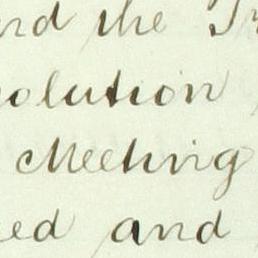 nd the Tr
olution
Meeting
ed and